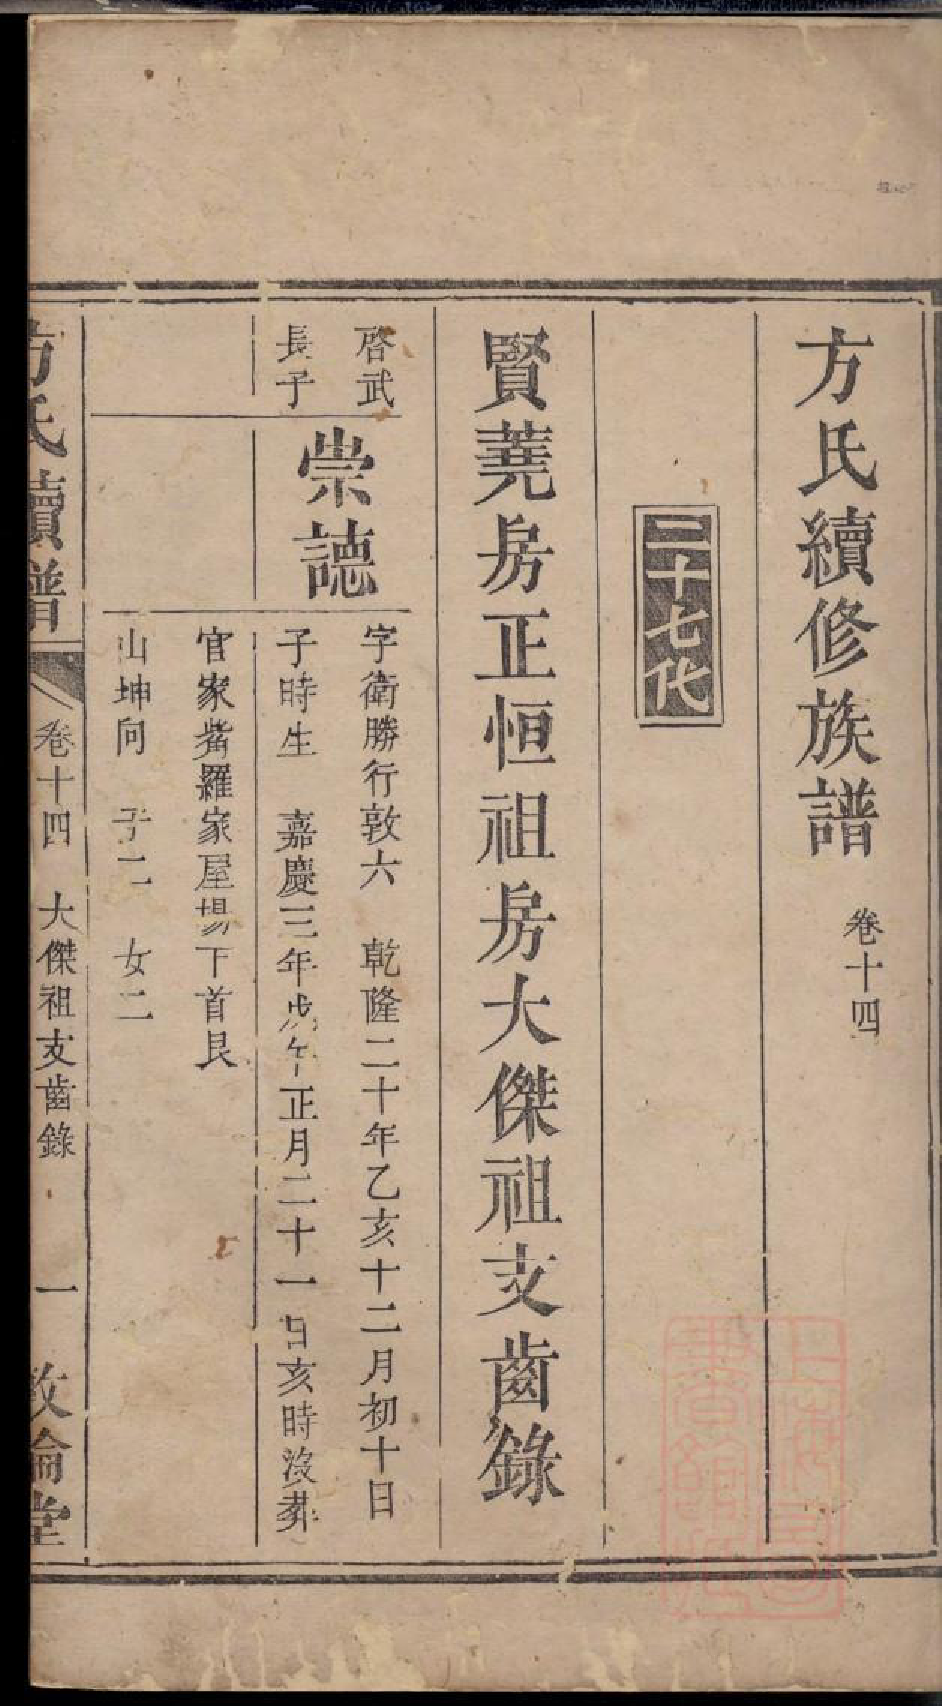 方氏續修族譜 卷十四
二十七代
賢蕘房正恒祖房大傑祖支齒錄
啓武
長子
崇誌
字衛勝行敦六 乾隆二十年乙亥十二月初十日
子時生 嘉慶三年戊午正月二十一日亥時沒葬
官家嘴羅家屋塲下首艮
山坤向 子二 女二
方氏續譜 卷十四 大傑祖支齒錄 一 敦倫堂